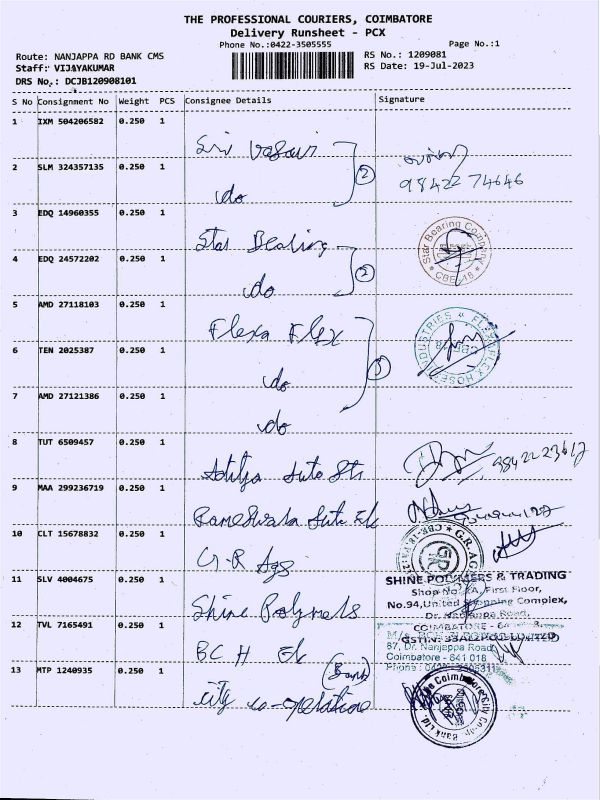 THE PROFESSIONAL COURIERS, COIMBATORE
Delivery Runsheet - PCX
Phone No.:0422-3505555
Page No.:1
Route: NANJAPPA RD BANK CMS
RS No.: 1209081
Staff: VIJAYAKUMAR
RS Date: 19-Jul-2023
DRS No.: DCJB120908101
S No Consignment No Weight PCS Consignee Details Signature
1 IXM 504206582 0.250 1
Sri Vasavi
2 SLM 324357135 0.250 1
do
2
98422 74646
3 EDQ 14960355 0.250 1
Star Bearing
Star Bearing Company
CBE-18
4 EDQ 24572202 0.250 1
do
2
5 AMD 27118103 0.250 1
Flexa Flex
6 TEN 2025387 0.250 1
do
3
7 AMD 27121386 0.250 1
do
8 TUT 6509457 0.250 1
Aditya Auto Str
9 MAA 299236719 0.250 1
Rameswara
10 CLT 15678832 0.250 1
G.R Ags
GR
11 SLV 4004675 0.250 1
Shine Polymers
SHINE POLYMERS & TRADING
First Floor,
No.94,United Shopping Complex,
Dr. Nanjappa Road,
COIMBATORE -
12 TVL 7165491 0.250 1
BCH
87, Dr. Nanjappa Road
Coimbatore - 641 018
13 MTP 1240935 0.250 1
(Bank)
city co-operative